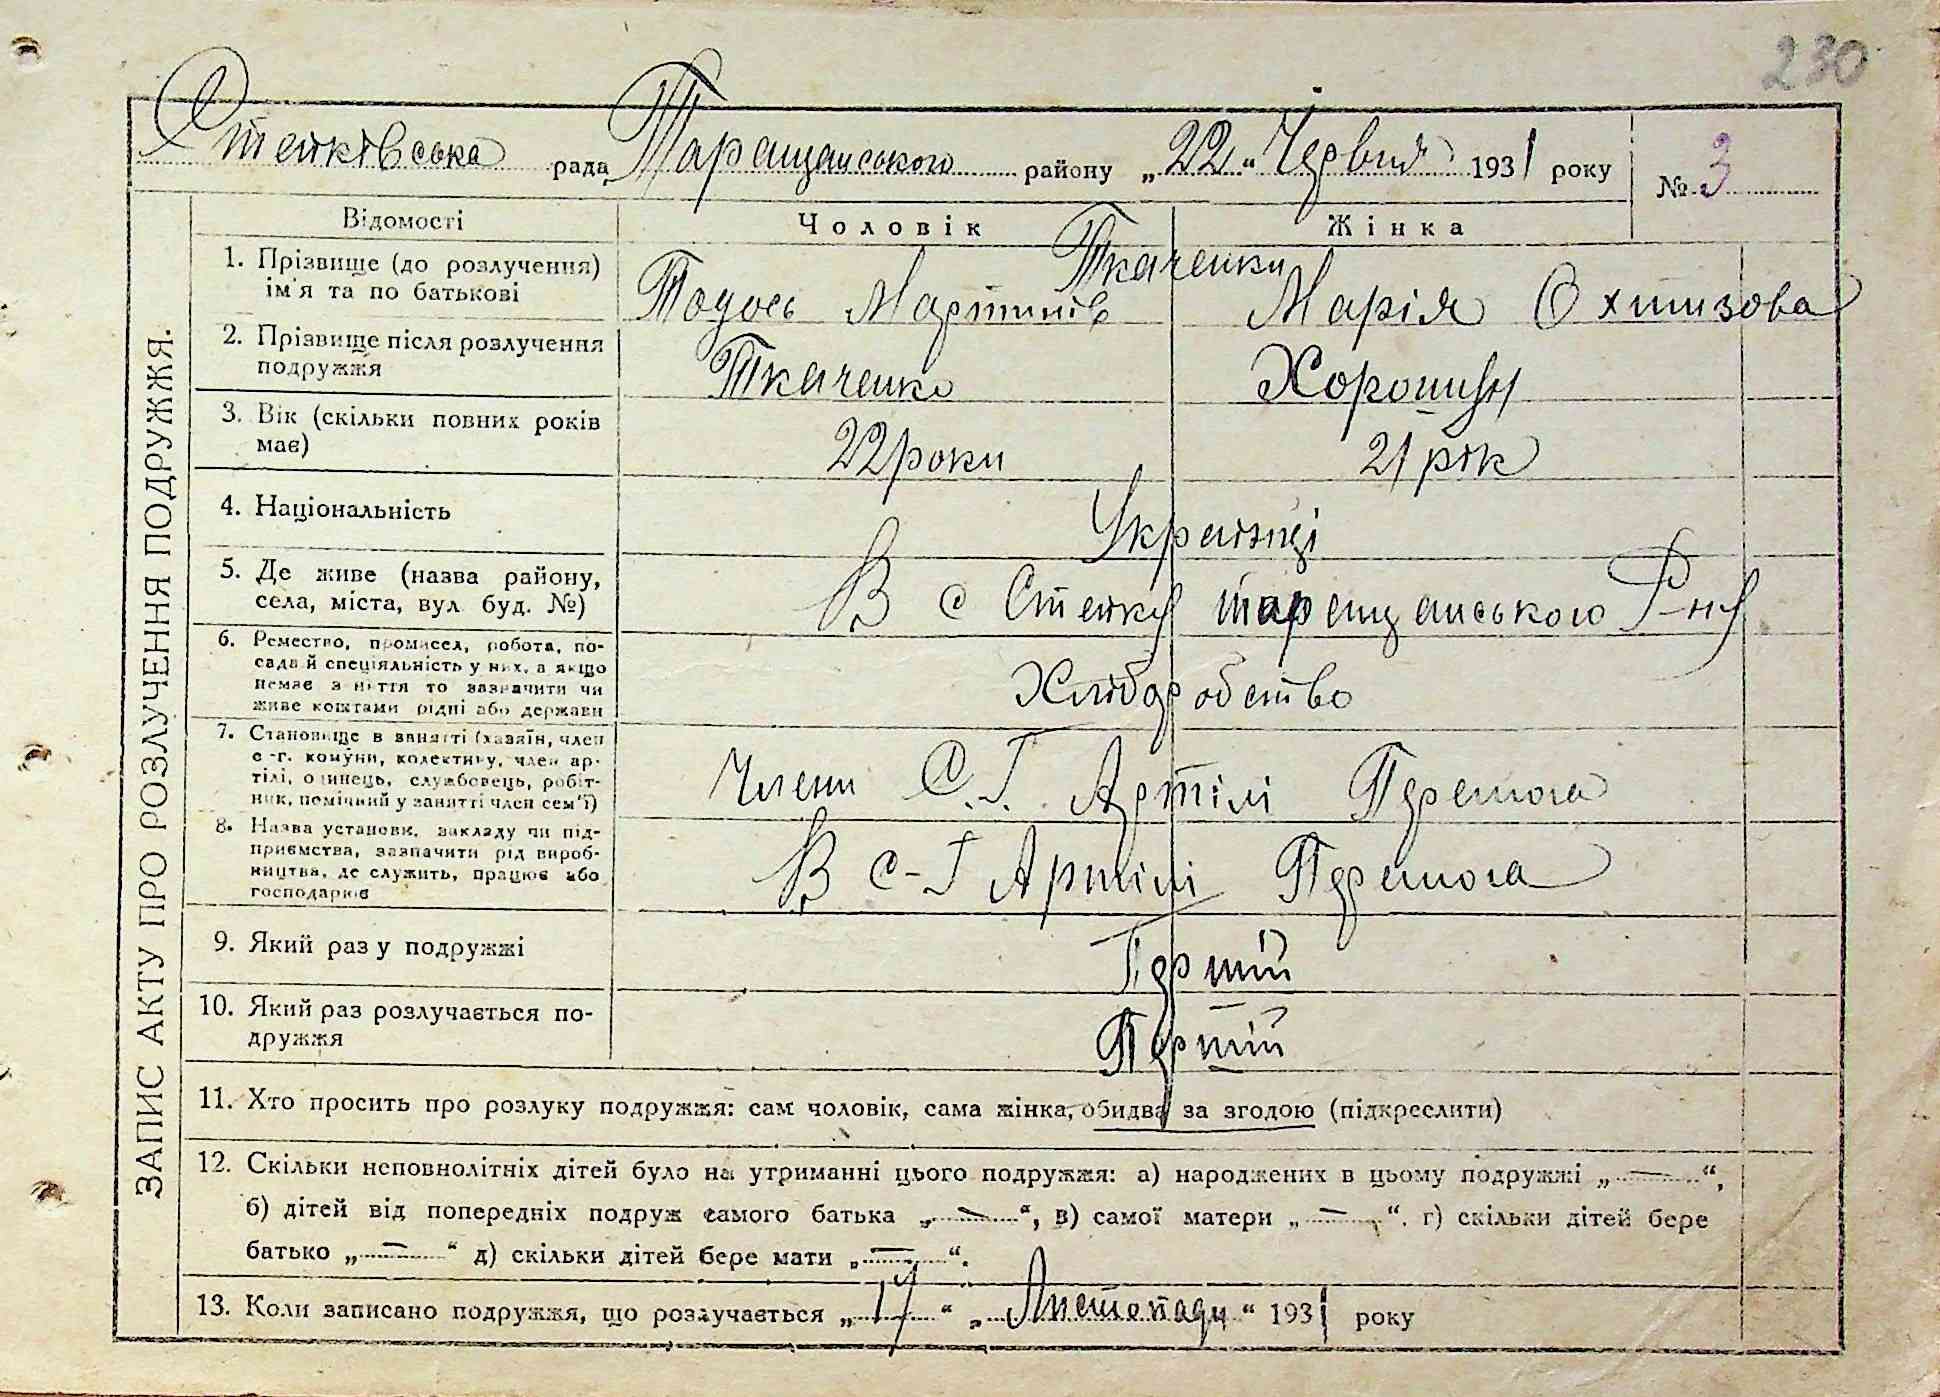 230
Стенківська рада, Таращанського району „22“ Червня 1931 року № 3
ЗАПИС АКТУ ПРО РОЗЛУЧЕННЯ ПОДРУЖЖЯ.
Відомості Чоловік Жінка
1. Прізвище (до розлучення)
ім'я та по батькові
Ткаченки
Тодось Мартинів Марія Охтизова
2. Прізвище після розлучення
подружжя
Ткаченко Хорошун
3. Вік (скільки повних років
має)
22 роки 21 рік
4. Національність
Українці
5. Де живе (назва району,
села, міста, вул. буд. №)
В с Стенку таращанського Р-ну
6. Ремество, промисел, робота, по-
сада й спеціяльність у них, а якщо
немає заняття то зазначити чи
живе коштами рідні або держави
Хліборобство
7. Становище в занятті (хазяїн, член
с-г. комуни, колективу, член ар-
тілі, одинець, службовець, робіт-
ник, помічний у занятті член сем'ї)
Члени С.Г. Артілі Перемога
8. Назва установи, закладу чи під-
приємства, зазначити рід вироб-
ництва, де служить, працює або
господарює
В с-г Артілі Перемога
9. Який раз у подружжі
Перший
10. Який раз розлучається по-
дружжя
Перший
11. Хто просить про розлуку подружжя: сам чоловік, сама жінка, обидва за згодою (підкреслити)
12. Скільки неповнолітніх дітей було на утриманні цього подружжя: а) народжених в цьому подружжі „—“,
б) дітей від попередніх подруж самого батька „—“, в) самої матери „—“. г) скільки дітей бере
батько „—“ д) скільки дітей бере мати „—“.
13. Коли записано подружжя, що розлучається „17“ „Листопаду“ 1931 року